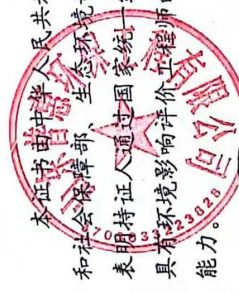 本证书由中华人民共
和社会保障部、生态环境
表明持证人通过国家统一
具有环境影响评价工程师
能力。
有限公司